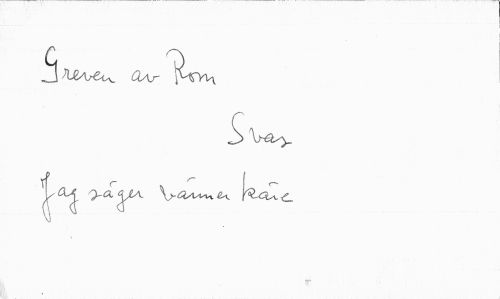 Greven av Rom
Svar
Jag säger vänner käre